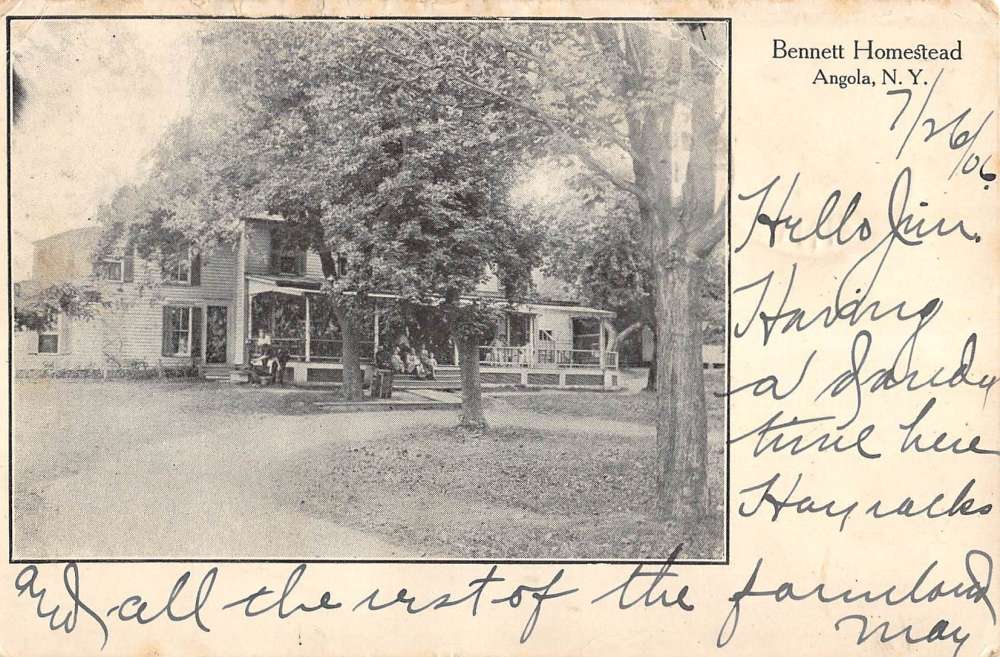 Bennett Homestead
Angola, N. Y.
7/26/06.
Hello Jim.
Having
a dandy
time here
Hay racks
and all the rest of the farmland
May